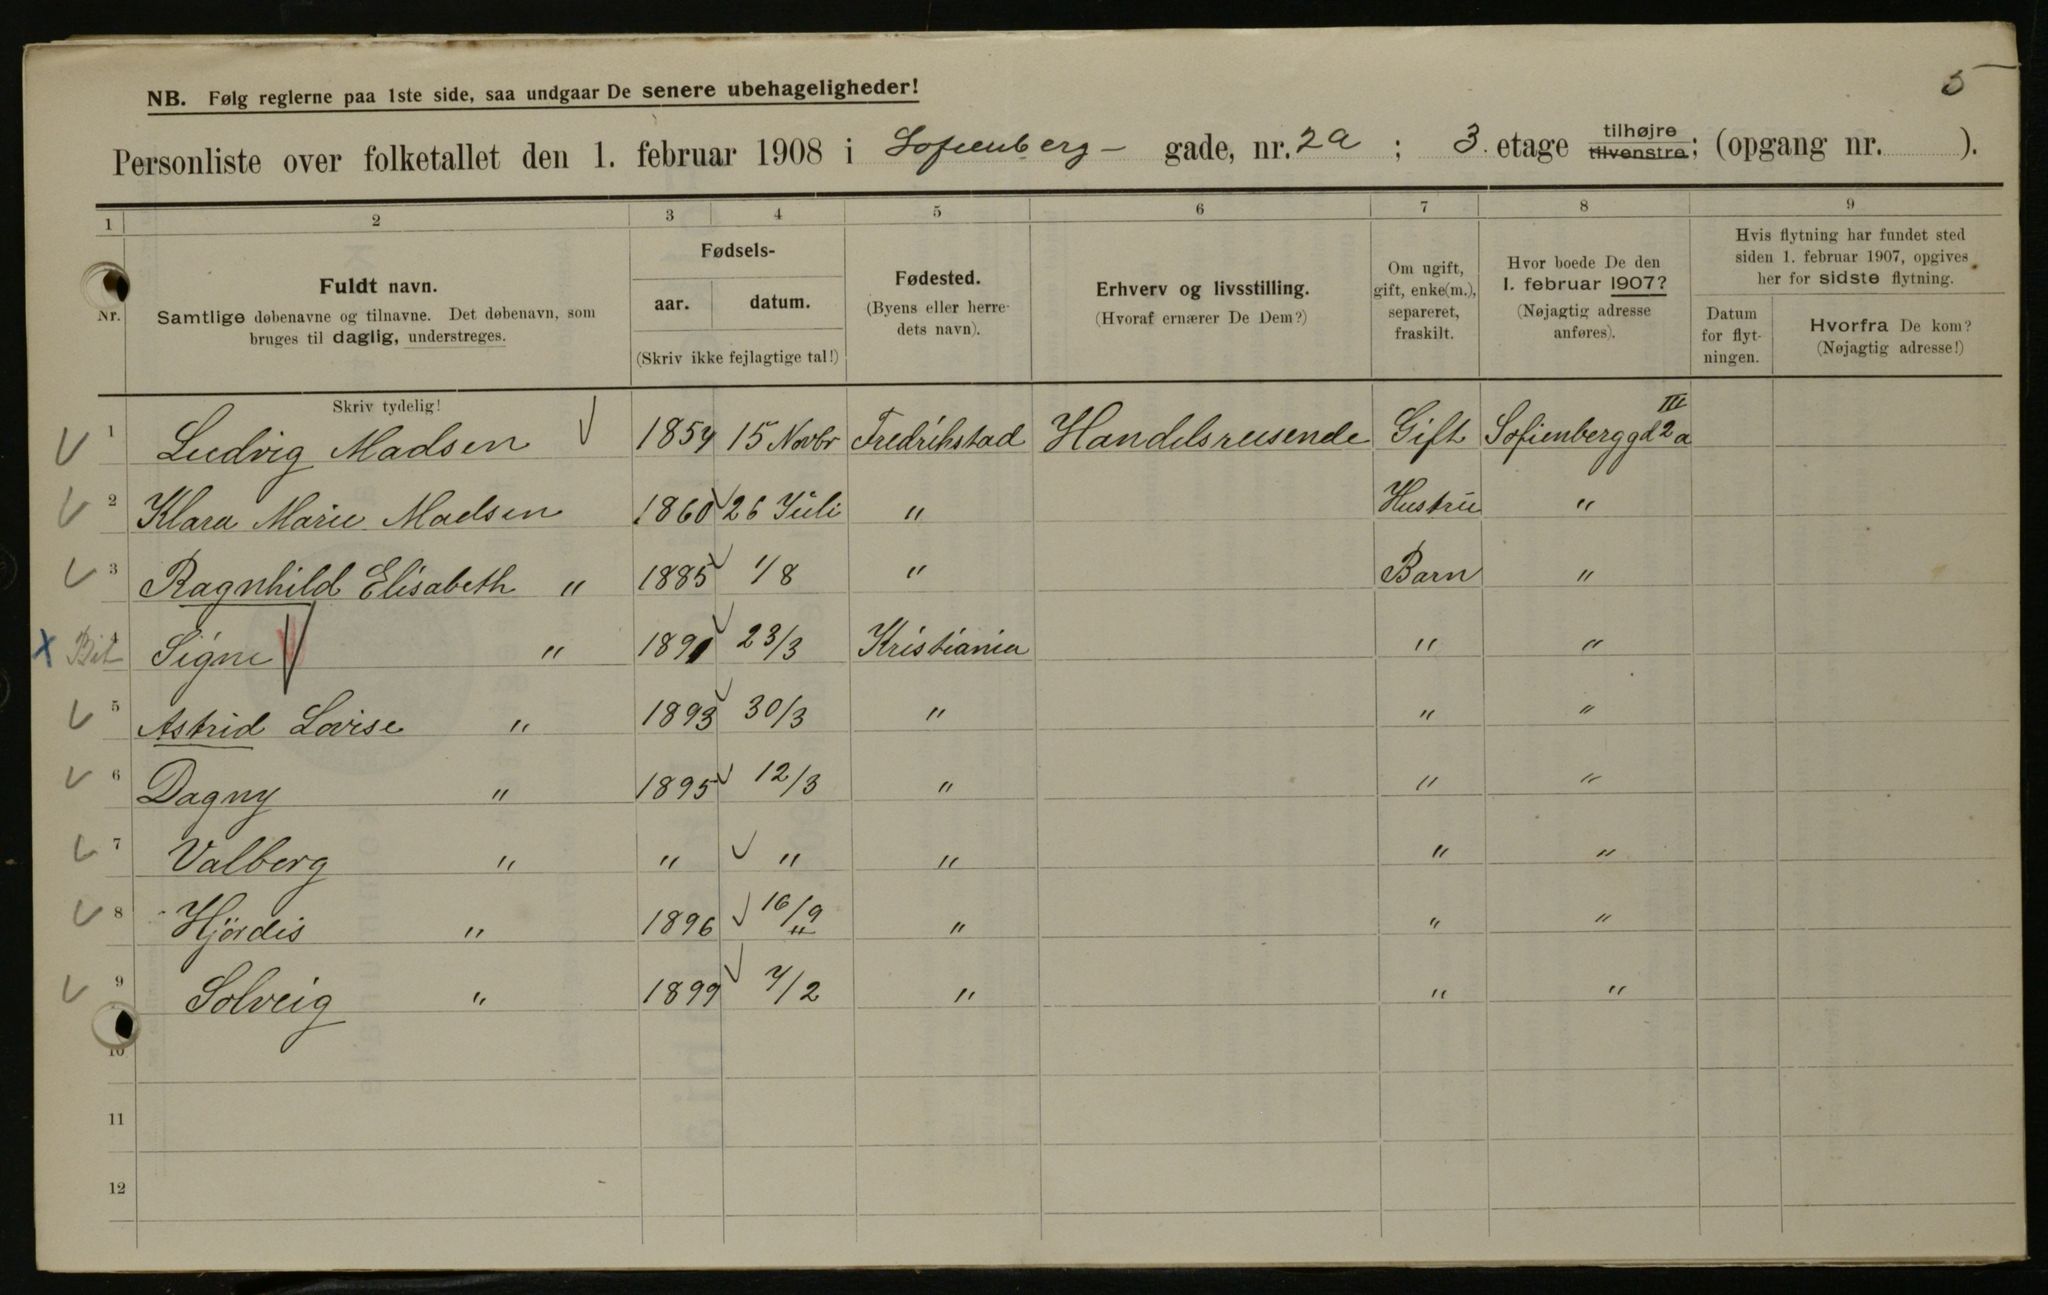 5
NB. Følg reglerne paa 1ste side, saa undgaar De senere ubehageligheder!
Personliste over folketallet den 1. februar 1908 i Sofienberg- gade, nr. 2a ; 3. etage tilhøjre tilvenstre; (opgang nr. ).
1 2 3 4 5 6 7 8 9
Nr.
Fuldt navn.
Samtlige døbenavne og tilnavne. Det døbenavn, som
bruges til daglig, understreges.
Fødsels-
aar. datum.
(Skriv ikke fejlagtige tal!)
Fødested.
(Byens eller herre-
dets navn).
Erhverv og livsstilling.
(Hvoraf ernærer De Dem?)
Om ugift,
gift, enke(m.),
separeret,
fraskilt.
Hvor boede De den
1. februar 1907?
(Nøjagtig adresse
anføres).
Hvis flytning har fundet sted
siden 1. februar 1907, opgives
her for sidste flytning.
Datum
for flyt-
ningen.
Hvorfra De kom?
(Nøjagtig adresse!)
Skriv tydelig!
1 Ludvig Madsen 1854 15 Novbr Fredrikstad Handelsreisende Gift Sofienberggd 2a III
2 Klara Marie Madsen 1860 26 Juli " Hustru "
3 Ragnhild Elisabeth " 1885 1/8 " Barn "
4 Signe " 1891 23/3 Kristiania " "
5 Astrid Lovise " 1893 30/3 " " "
6 Dagny " 1895 12/3 " " "
7 Valberg " " " " " "
8 Hjördis " 1896 16/9 " " "
9 Solveig " 1899 7/2 " " "
10
11
12